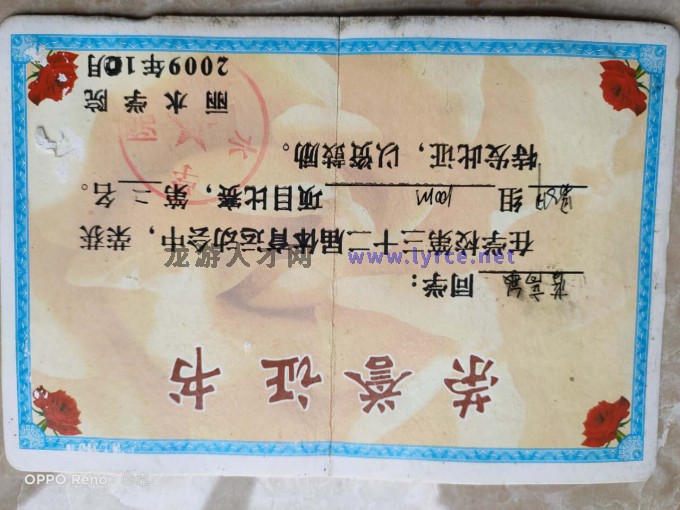 荣誉证书
同学：
在学校第三十二届体育运动会中，荣获
男子组 100m 项目比赛，第二名。
特发此证，以资鼓励。
丽水学院
2009年10月
龙游人才网 www.lyrce.net
OPPO Reno